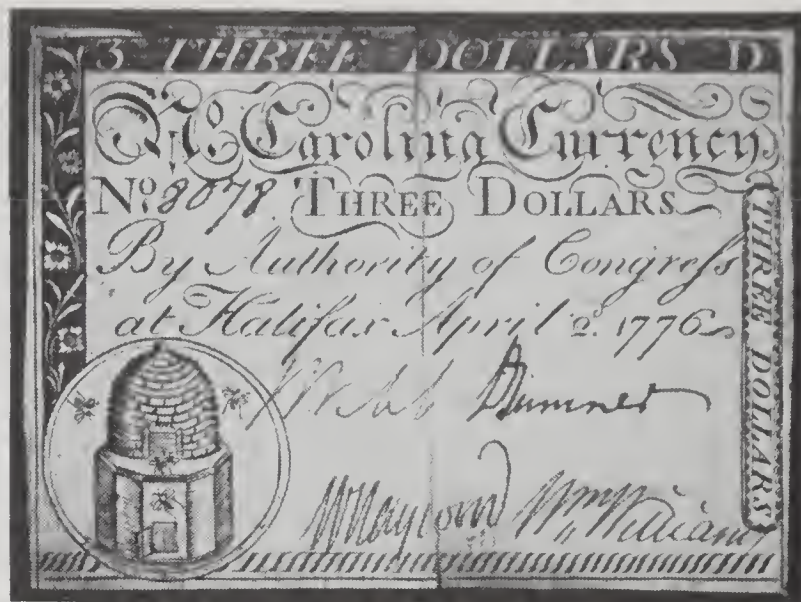 3 THREE DOLLARS D
No. Carolina Currency
No. 8078 THREE DOLLARS
By Authority of Congress
at Halifax April 2d. 1776
THREE DOLLARS
Webb Sumner
W Haywood Wm. Williams